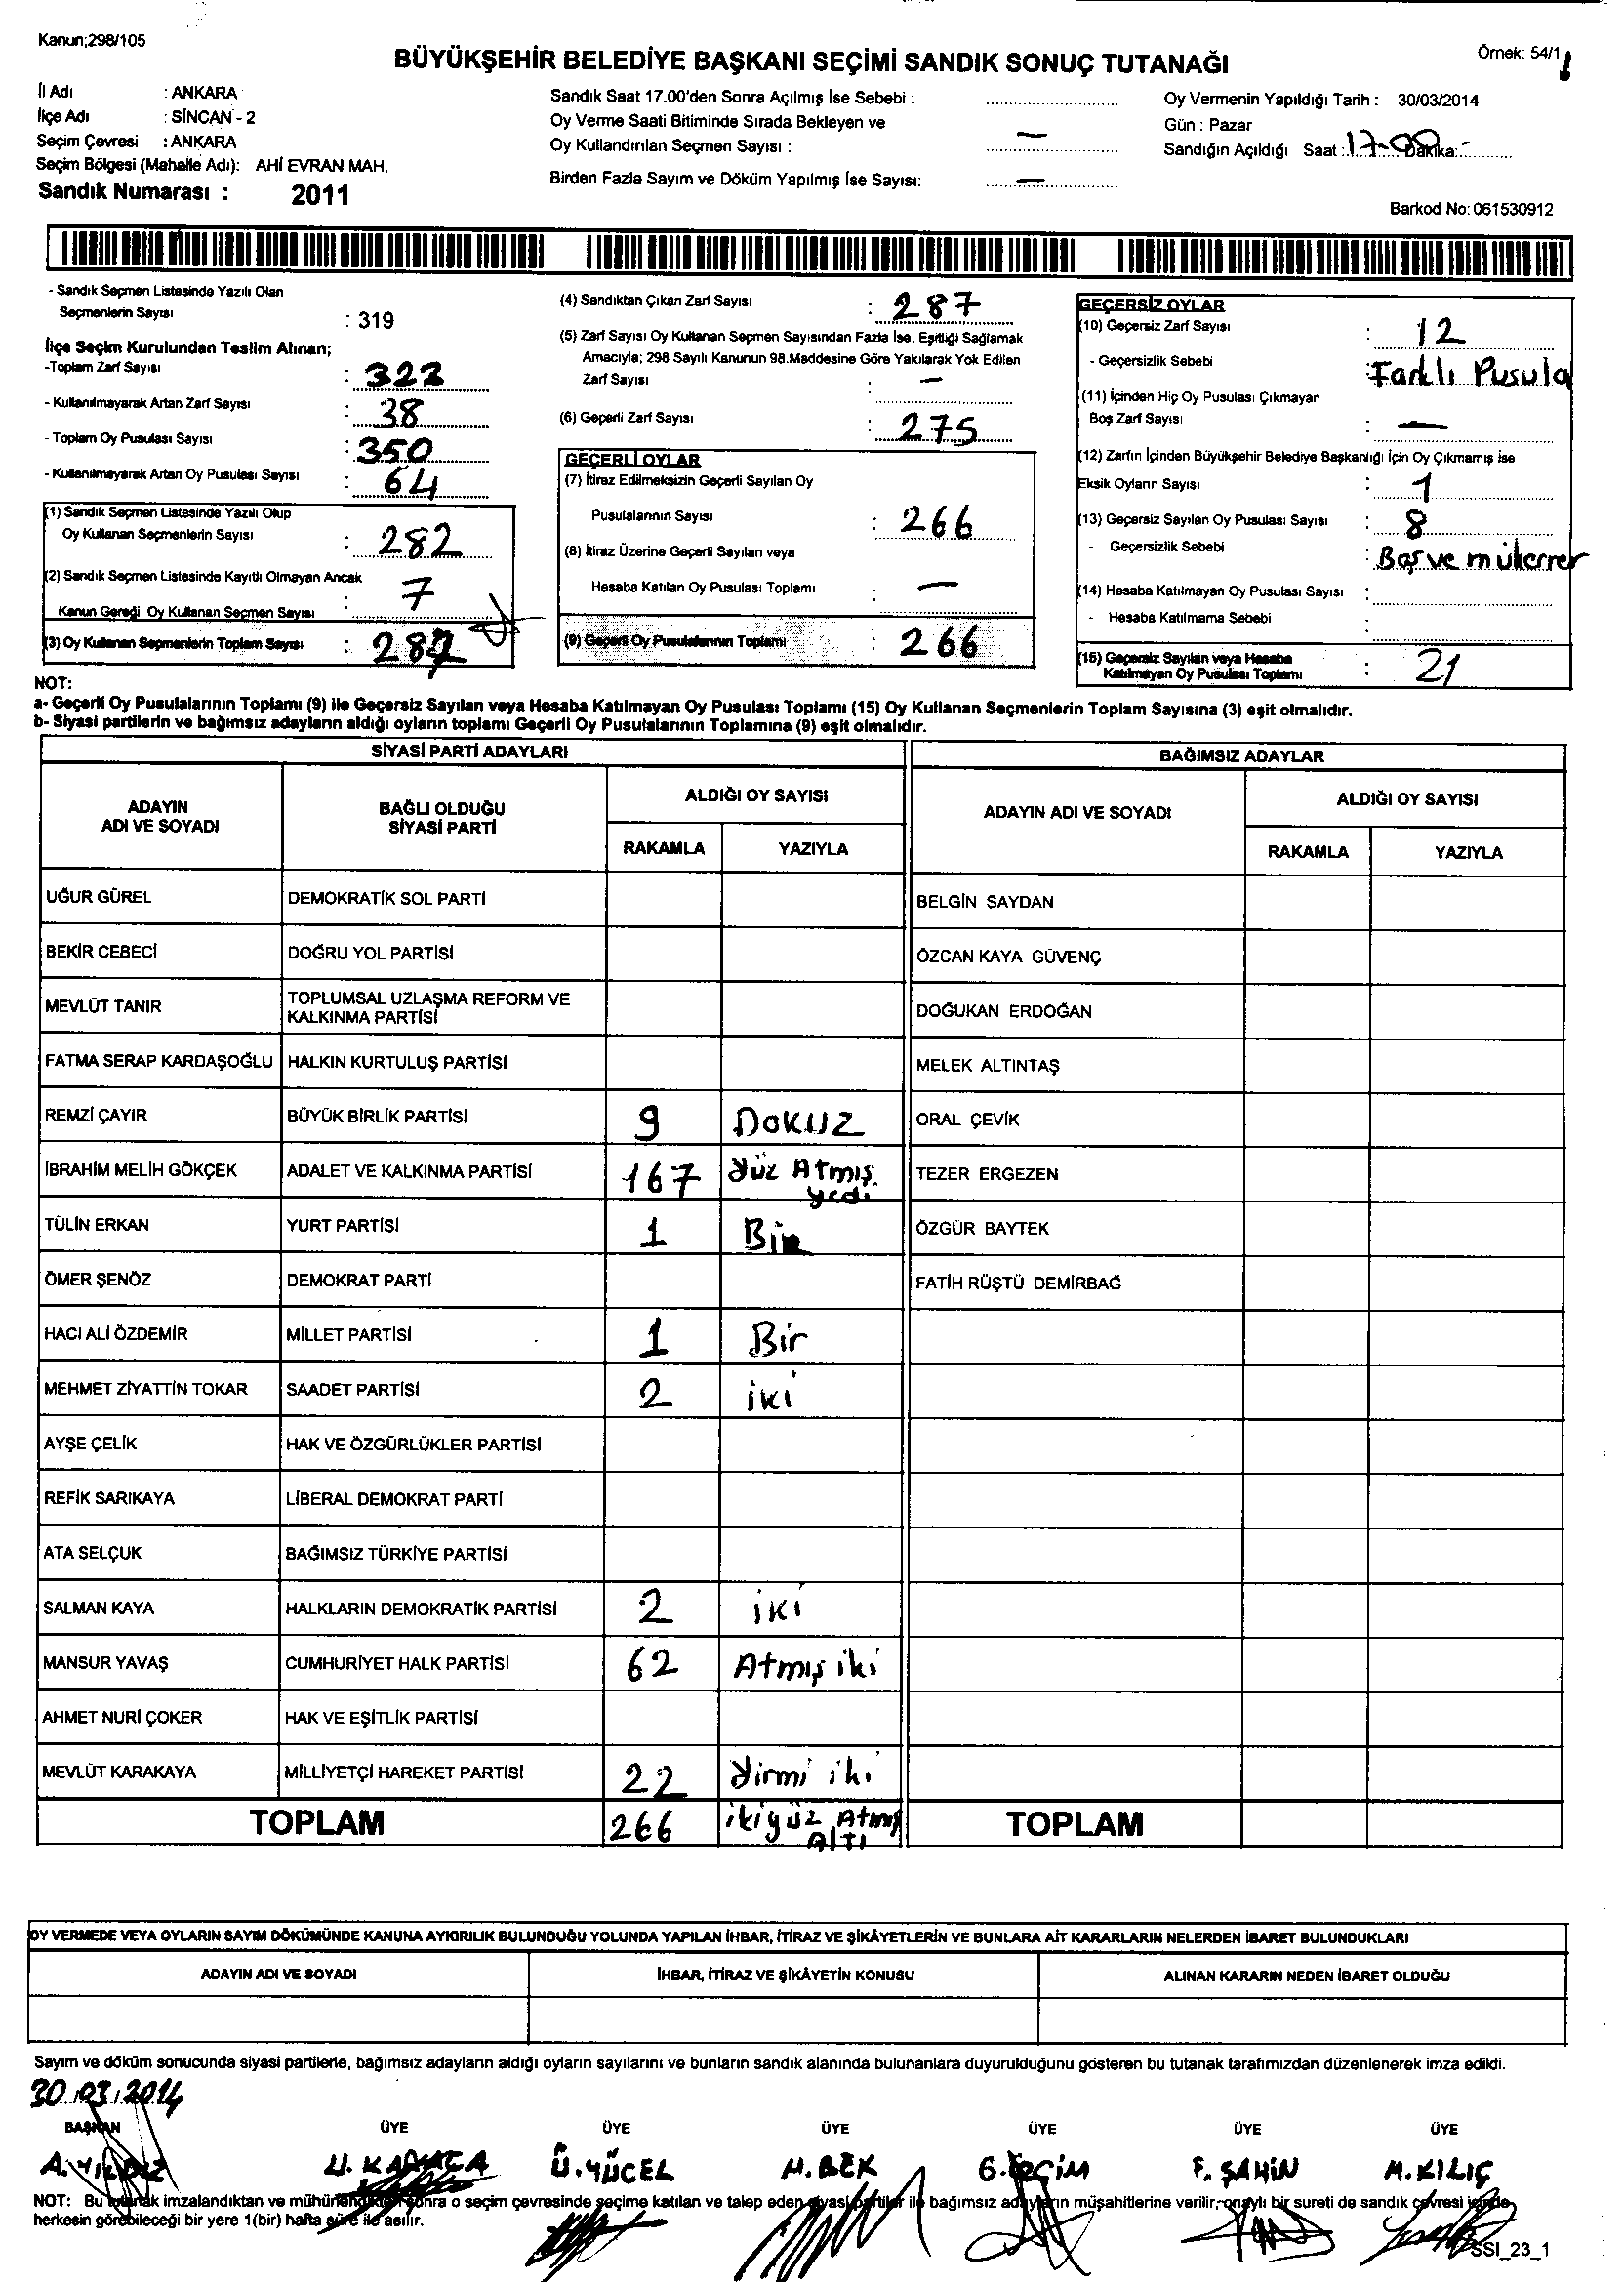 Kanun;298/105
Örnek: 54/1
BÜYÜKŞEHİR BELEDİYE BAŞKANI SEÇİMİ SANDIK SONUÇ TUTANAĞI
İl Adı : ANKARA
İlçe Adı : SİNCAN - 2
Seçim Çevresi : ANKARA
Seçim Bölgesi (Mahalle Adı): AHİ EVRAN MAH.
Sandık Numarası : 2011
Sandık Saat 17.00'den Sonra Açılmış İse Sebebi :
Oy Verme Saati Bitiminde Sırada Bekleyen ve
Oy Kullandırılan Seçmen Sayısı : —
Birden Fazla Sayım ve Döküm Yapılmış İse Sayısı: —
Oy Vermenin Yapıldığı Tarih : 30/03/2014
Gün : Pazar
Sandığın Açıldığı Saat : 17-00 Dakika: -
Barkod No: 061530912
- Sandık Seçmen Listesinde Yazılı Olan
Seçmenlerin Sayısı : 319
İlçe Seçim Kurulundan Teslim Alınan;
-Toplam Zarf Sayısı :
- Kullanılmayarak Artan Zarf Sayısı : 38
- Toplam Oy Pusulası Sayısı : 350
- Kullanılmayarak Artan Oy Pusulası Sayısı : 64
(1) Sandık Seçmen Listesinde Yazılı Olup
Oy Kullanan Seçmenlerin Sayısı : 282
(2) Sandık Seçmen Listesinde Kayıtlı Olmayan Ancak
Kanun Gereği Oy Kullanan Seçmen Sayısı : 7
(3) Oy Kullanan Seçmenlerin Toplam Sayısı : 287
(4) Sandıktan Çıkan Zarf Sayısı : 287
(5) Zarf Sayısı Oy Kullanan Seçmen Sayısından Fazla İse, Eşitliği Sağlamak
Amacıyla; 298 Sayılı Kanunun 98.Maddesine Göre Yakılarak Yok Edilen
Zarf Sayısı : —
(6) Geçerli Zarf Sayısı : 275
GEÇERLİ OYLAR
(7) İtiraz Edilmeksizin Geçerli Sayılan Oy
Pusulalarının Sayısı : 266
(8) İtiraz Üzerine Geçerli Sayılan veya
Hesaba Katılan Oy Pusulası Toplamı : —
(9) Geçerli Oy Pusulalarının Toplamı : 266
GEÇERSİZ OYLAR
(10) Geçersiz Zarf Sayısı : 12
- Geçersizlik Sebebi : Farklı Pusula
(11) İçinden Hiç Oy Pusulası Çıkmayan
Boş Zarf Sayısı : —
(12) Zarfın İçinden Büyükşehir Belediye Başkanlığı İçin Oy Çıkmamış ise
Eksik Oyların Sayısı : 1
(13) Geçersiz Sayılan Oy Pusulası Sayısı : 8
- Geçersizlik Sebebi : Boş ve mükerrer
(14) Hesaba Katılmayan Oy Pusulası Sayısı :
- Hesaba Katılmama Sebebi :
(15) Geçersiz Sayılan veya Hesaba
Katılmayan Oy Pusulası Toplamı : 21
NOT:
a- Geçerli Oy Pusulalarının Toplamı (9) ile Geçersiz Sayılan veya Hesaba Katılmayan Oy Pusulası Toplamı (15) Oy Kullanan Seçmenlerin Toplam Sayısına (3) eşit olmalıdır.
b- Siyasi partilerin ve bağımsız adayların aldığı oyların toplamı Geçerli Oy Pusulalarının Toplamına (9) eşit olmalıdır.
SİYASİ PARTİ ADAYLARI
ADAYIN ADI VE SOYADI BAĞLI OLDUĞU SİYASİ PARTİ ALDIĞI OY SAYISI
RAKAMLA YAZIYLA
UĞUR GÜREL DEMOKRATİK SOL PARTİ
BEKİR CEBECİ DOĞRU YOL PARTİSİ
MEVLÜT TANIR TOPLUMSAL UZLAŞMA REFORM VE KALKINMA PARTİSİ
FATMA SERAP KARDAŞOĞLU HALKIN KURTULUŞ PARTİSİ
REMZİ ÇAYIR BÜYÜK BİRLİK PARTİSİ 9 DOKUZ
İBRAHİM MELİH GÖKÇEK ADALET VE KALKINMA PARTİSİ 167 Yüz Atmış yedi
TÜLİN ERKAN YURT PARTİSİ 1 Bir
ÖMER ŞENÖZ DEMOKRAT PARTİ
HACI ALİ ÖZDEMİR MİLLET PARTİSİ 1 Bir
MEHMET ZİYATTİN TOKAR SAADET PARTİSİ 2 iki
AYŞE ÇELİK HAK VE ÖZGÜRLÜKLER PARTİSİ
REFİK SARIKAYA LİBERAL DEMOKRAT PARTİ
ATA SELÇUK BAĞIMSIZ TÜRKİYE PARTİSİ
SALMAN KAYA HALKLARIN DEMOKRATİK PARTİSİ 2 iki
MANSUR YAVAŞ CUMHURİYET HALK PARTİSİ 62 Atmış iki
AHMET NURİ ÇOKER HAK VE EŞİTLİK PARTİSİ
MEVLÜT KARAKAYA MİLLİYETÇİ HAREKET PARTİSİ 22 Yirmi iki
TOPLAM 266 ikiyüz Atmış Altı
BAĞIMSIZ ADAYLAR
ADAYIN ADI VE SOYADI ALDIĞI OY SAYISI
RAKAMLA YAZIYLA
BELGİN SAYDAN
ÖZCAN KAYA GÜVENÇ
DOĞUKAN ERDOĞAN
MELEK ALTINTAŞ
ORAL ÇEVİK
TEZER ERGEZEN
ÖZGÜR BAYTEK
FATİH RÜŞTÜ DEMİRBAĞ
TOPLAM
OY VERMEDE VEYA OYLARIN SAYIM DÖKÜMÜNDE KANUNA AYKIRILIK BULUNDUĞU YOLUNDA YAPILAN İHBAR, İTİRAZ VE ŞİKÂYETLERİN VE BUNLARA AİT KARARLARIN NELERDEN İBARET BULUNDUKLARI
ADAYIN ADI VE SOYADI İHBAR, İTİRAZ VE ŞİKÂYETİN KONUSU ALINAN KARARIN NEDEN İBARET OLDUĞU
Sayım ve döküm sonucunda siyasi partilerle, bağımsız adayların aldığı oyların sayılarını ve bunların sandık alanında bulunanlara duyurulduğunu gösteren bu tutanak tarafımızdan düzenlenerek imza edildi.
30/03/2014
BAŞKAN ÜYE ÜYE ÜYE ÜYE ÜYE ÜYE
A. YILDIZ U. KARACA Ü. YÜCEL H. BEK G. SEÇİM F. ŞAHİN M. KILIÇ
NOT: Bu tutanak imzalandıktan ve mühürlendikten sonra o seçim çevresinde seçime katılan ve talep eden siyasi partiler ile bağımsız adayların müşahitlerine verilir, onaylı bir sureti de sandık çevresi içinde
herkesin görebileceği bir yere 1(bir) hafta süre ile asılır.
SSI_23_1